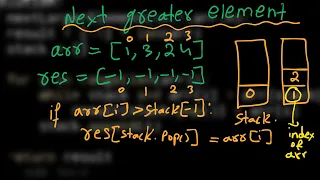 Next greater element
0 1 2 3
arr = [1, 3, 2, 4]
res = [-1, -1, -1, -1]
0 1 2 3
if arr[i] > stack[-1]:
res[stack.pop()] = arr[i]
0
stack
2
1
index
of
arr